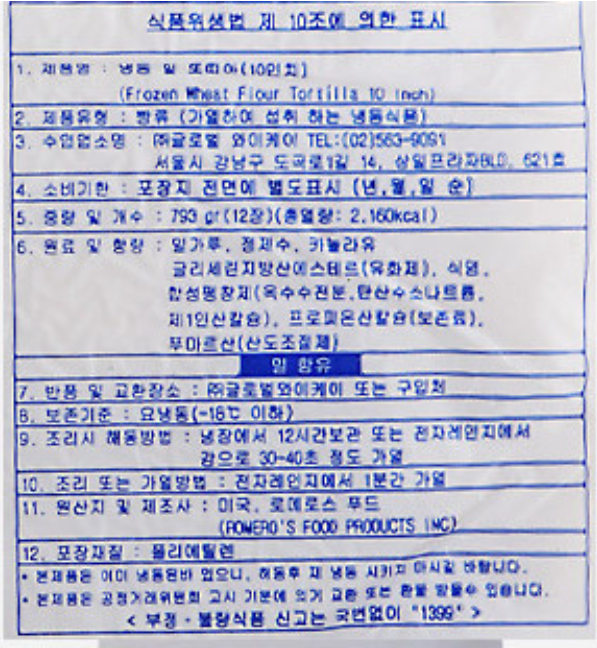 식품위생법 제 10조에 의한 표시
1. 제품명 : 냉동 밀 또띠아(10인치)
(Frozen Wheat Flour Tortilla 10 Inch)
2. 제품유형 : 빵류 (가열하여 섭취 하는 냉동식품)
3. 수입업소명 : ㈜글로벌 와이케이 TEL:(02)563-9091
서울시 강남구 도곡로1길 14, 삼일프라자BLD, 621호
4. 소비기한 : 포장지 전면에 별도표시 (년,월,일 순)
5. 중량 및 개수 : 793 gr(12장)(총열량: 2,160kcal)
6. 원료 및 함량 : 밀가루, 정제수, 카놀라유
글리세린지방산에스테르(유화제), 식염,
합성팽창제(옥수수전분,탄산수소나트륨,
제1인산칼슘), 프로피온산칼슘(보존료),
푸마르산(산도조절제)
밀 함유
7. 반품 및 교환장소 : ㈜글로벌와이케이 또는 구입처
8. 보존기준 : 요냉동(-18℃ 이하)
9. 조리시 해동방법 : 냉장에서 12시간보관 또는 전자레인지에서
강으로 30-40초 정도 가열
10. 조리 또는 가열방법 : 전자레인지에서 1분간 가열
11. 원산지 및 제조사 : 미국, 로메로스 푸드
(ROMERO'S FOOD PRODUCTS INC)
12. 포장재질 : 폴리에틸렌
• 본제품은 이미 냉동된바 있으니, 해동후 재 냉동 시키지 마시길 바랍니다.
• 본제품은 공정거래위원회 고시 기분에 의거 교환 또는 환불 받을수 있습니다.
< 부정 · 불량식품 신고는 국번없이 "1399" >